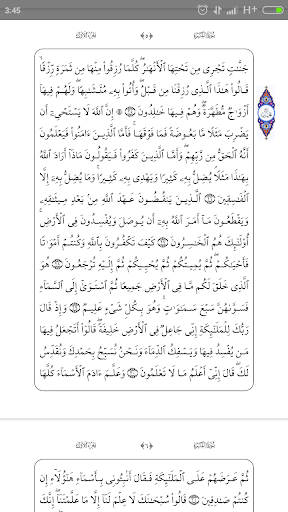 3:45
H+
سُورَةُ الْبَقَرَةِ ﴿٥﴾ الجُزْءُ الْأَوَّلُ
جَنَّٰتٖ تَجۡرِي مِن تَحۡتِهَا ٱلۡأَنۡهَٰرُۖ كُلَّمَا رُزِقُواْ مِنۡهَا مِن ثَمَرَةٖ رِّزۡقٗا
قَالُواْ هَٰذَا ٱلَّذِي رُزِقۡنَا مِن قَبۡلُۖ وَأُتُواْ بِهِۦ مُتَشَٰبِهٗاۖ وَلَهُمۡ فِيهَآ
أَزۡوَٰجٞ مُّطَهَّرَةٞۖ وَهُمۡ فِيهَا خَٰلِدُونَ ۝ ۞ إِنَّ ٱللَّهَ لَا يَسۡتَحۡيِۦٓ أَن
يَضۡرِبَ مَثَلٗا مَّا بَعُوضَةٗ فَمَا فَوۡقَهَاۚ فَأَمَّا ٱلَّذِينَ ءَامَنُواْ فَيَعۡلَمُونَ
أَنَّهُ ٱلۡحَقُّ مِن رَّبِّهِمۡۖ وَأَمَّا ٱلَّذِينَ كَفَرُواْ فَيَقُولُونَ مَاذَآ أَرَادَ ٱللَّهُ
بِهَٰذَا مَثَلٗاۘ يُضِلُّ بِهِۦ كَثِيرٗا وَيَهۡدِي بِهِۦ كَثِيرٗاۚ وَمَا يُضِلُّ بِهِۦٓ إِلَّا
ٱلۡفَٰسِقِينَ ۝ ٱلَّذِينَ يَنقُضُونَ عَهۡدَ ٱللَّهِ مِنۢ بَعۡدِ مِيثَٰقِهِۦ
وَيَقۡطَعُونَ مَآ أَمَرَ ٱللَّهُ بِهِۦٓ أَن يُوصَلَ وَيُفۡسِدُونَ فِي ٱلۡأَرۡضِۚ
أُوْلَٰٓئِكَ هُمُ ٱلۡخَٰسِرُونَ ۝ كَيۡفَ تَكۡفُرُونَ بِٱللَّهِ وَكُنتُمۡ أَمۡوَٰتٗا
فَأَحۡيَٰكُمۡۖ ثُمَّ يُمِيتُكُمۡ ثُمَّ يُحۡيِيكُمۡ ثُمَّ إِلَيۡهِ تُرۡجَعُونَ ۝ هُوَ
ٱلَّذِي خَلَقَ لَكُم مَّا فِي ٱلۡأَرۡضِ جَمِيعٗا ثُمَّ ٱسۡتَوَىٰٓ إِلَى ٱلسَّمَآءِ
فَسَوَّىٰهُنَّ سَبۡعَ سَمَٰوَٰتٖۚ وَهُوَ بِكُلِّ شَيۡءٍ عَلِيمٞ ۝ وَإِذۡ قَالَ
رَبُّكَ لِلۡمَلَٰٓئِكَةِ إِنِّي جَاعِلٞ فِي ٱلۡأَرۡضِ خَلِيفَةٗۖ قَالُوٓاْ أَتَجۡعَلُ فِيهَا
مَن يُفۡسِدُ فِيهَا وَيَسۡفِكُ ٱلدِّمَآءَ وَنَحۡنُ نُسَبِّحُ بِحَمۡدِكَ وَنُقَدِّسُ
لَكَۖ قَالَ إِنِّيٓ أَعۡلَمُ مَا لَا تَعۡلَمُونَ ۝ وَعَلَّمَ ءَادَمَ ٱلۡأَسۡمَآءَ كُلَّهَا
سُورَةُ الْبَقَرَةِ ﴿٦﴾ الجُزْءُ الْأَوَّلُ
ثُمَّ عَرَضَهُمۡ عَلَى ٱلۡمَلَٰٓئِكَةِ فَقَالَ أَنۢبِـُٔونِي بِأَسۡمَآءِ هَٰٓؤُلَآءِ إِن
كُنتُمۡ صَٰدِقِينَ ۝ قَالُواْ سُبۡحَٰنَكَ لَا عِلۡمَ لَنَآ إِلَّا مَا عَلَّمۡتَنَآۖ إِنَّكَ